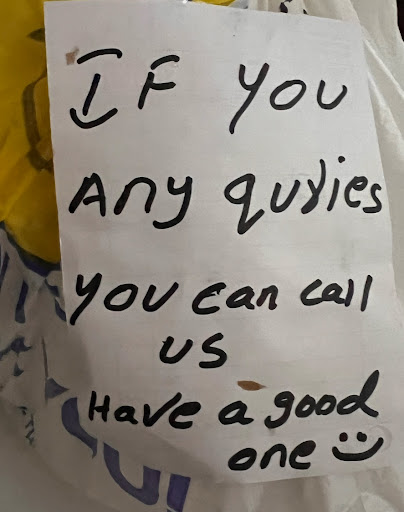 IF you
Any quries
you can call
us
Have a good
one